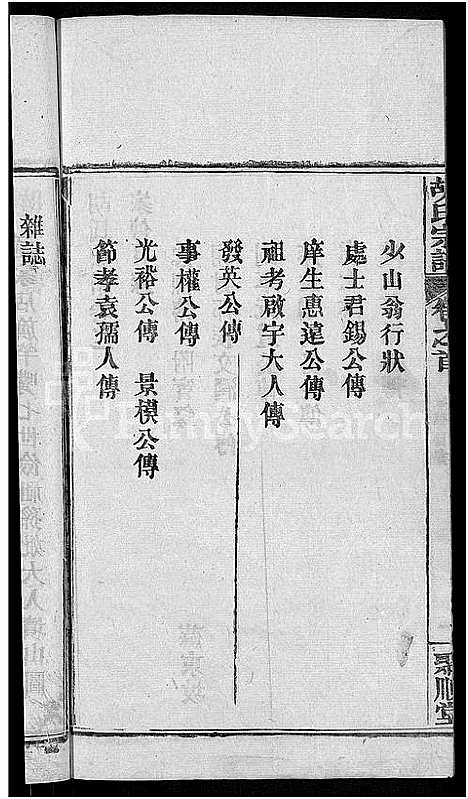 胡氏宗譜
卷之首
聚順堂
少山翁行狀
處士君錫公傳
庠生惠遠公傳
祖考啟宇大人傳
發英公傳
事權公傳
光裕公傳　景模公傳
節孝袁孺人傳
雜誌
FamilySearch